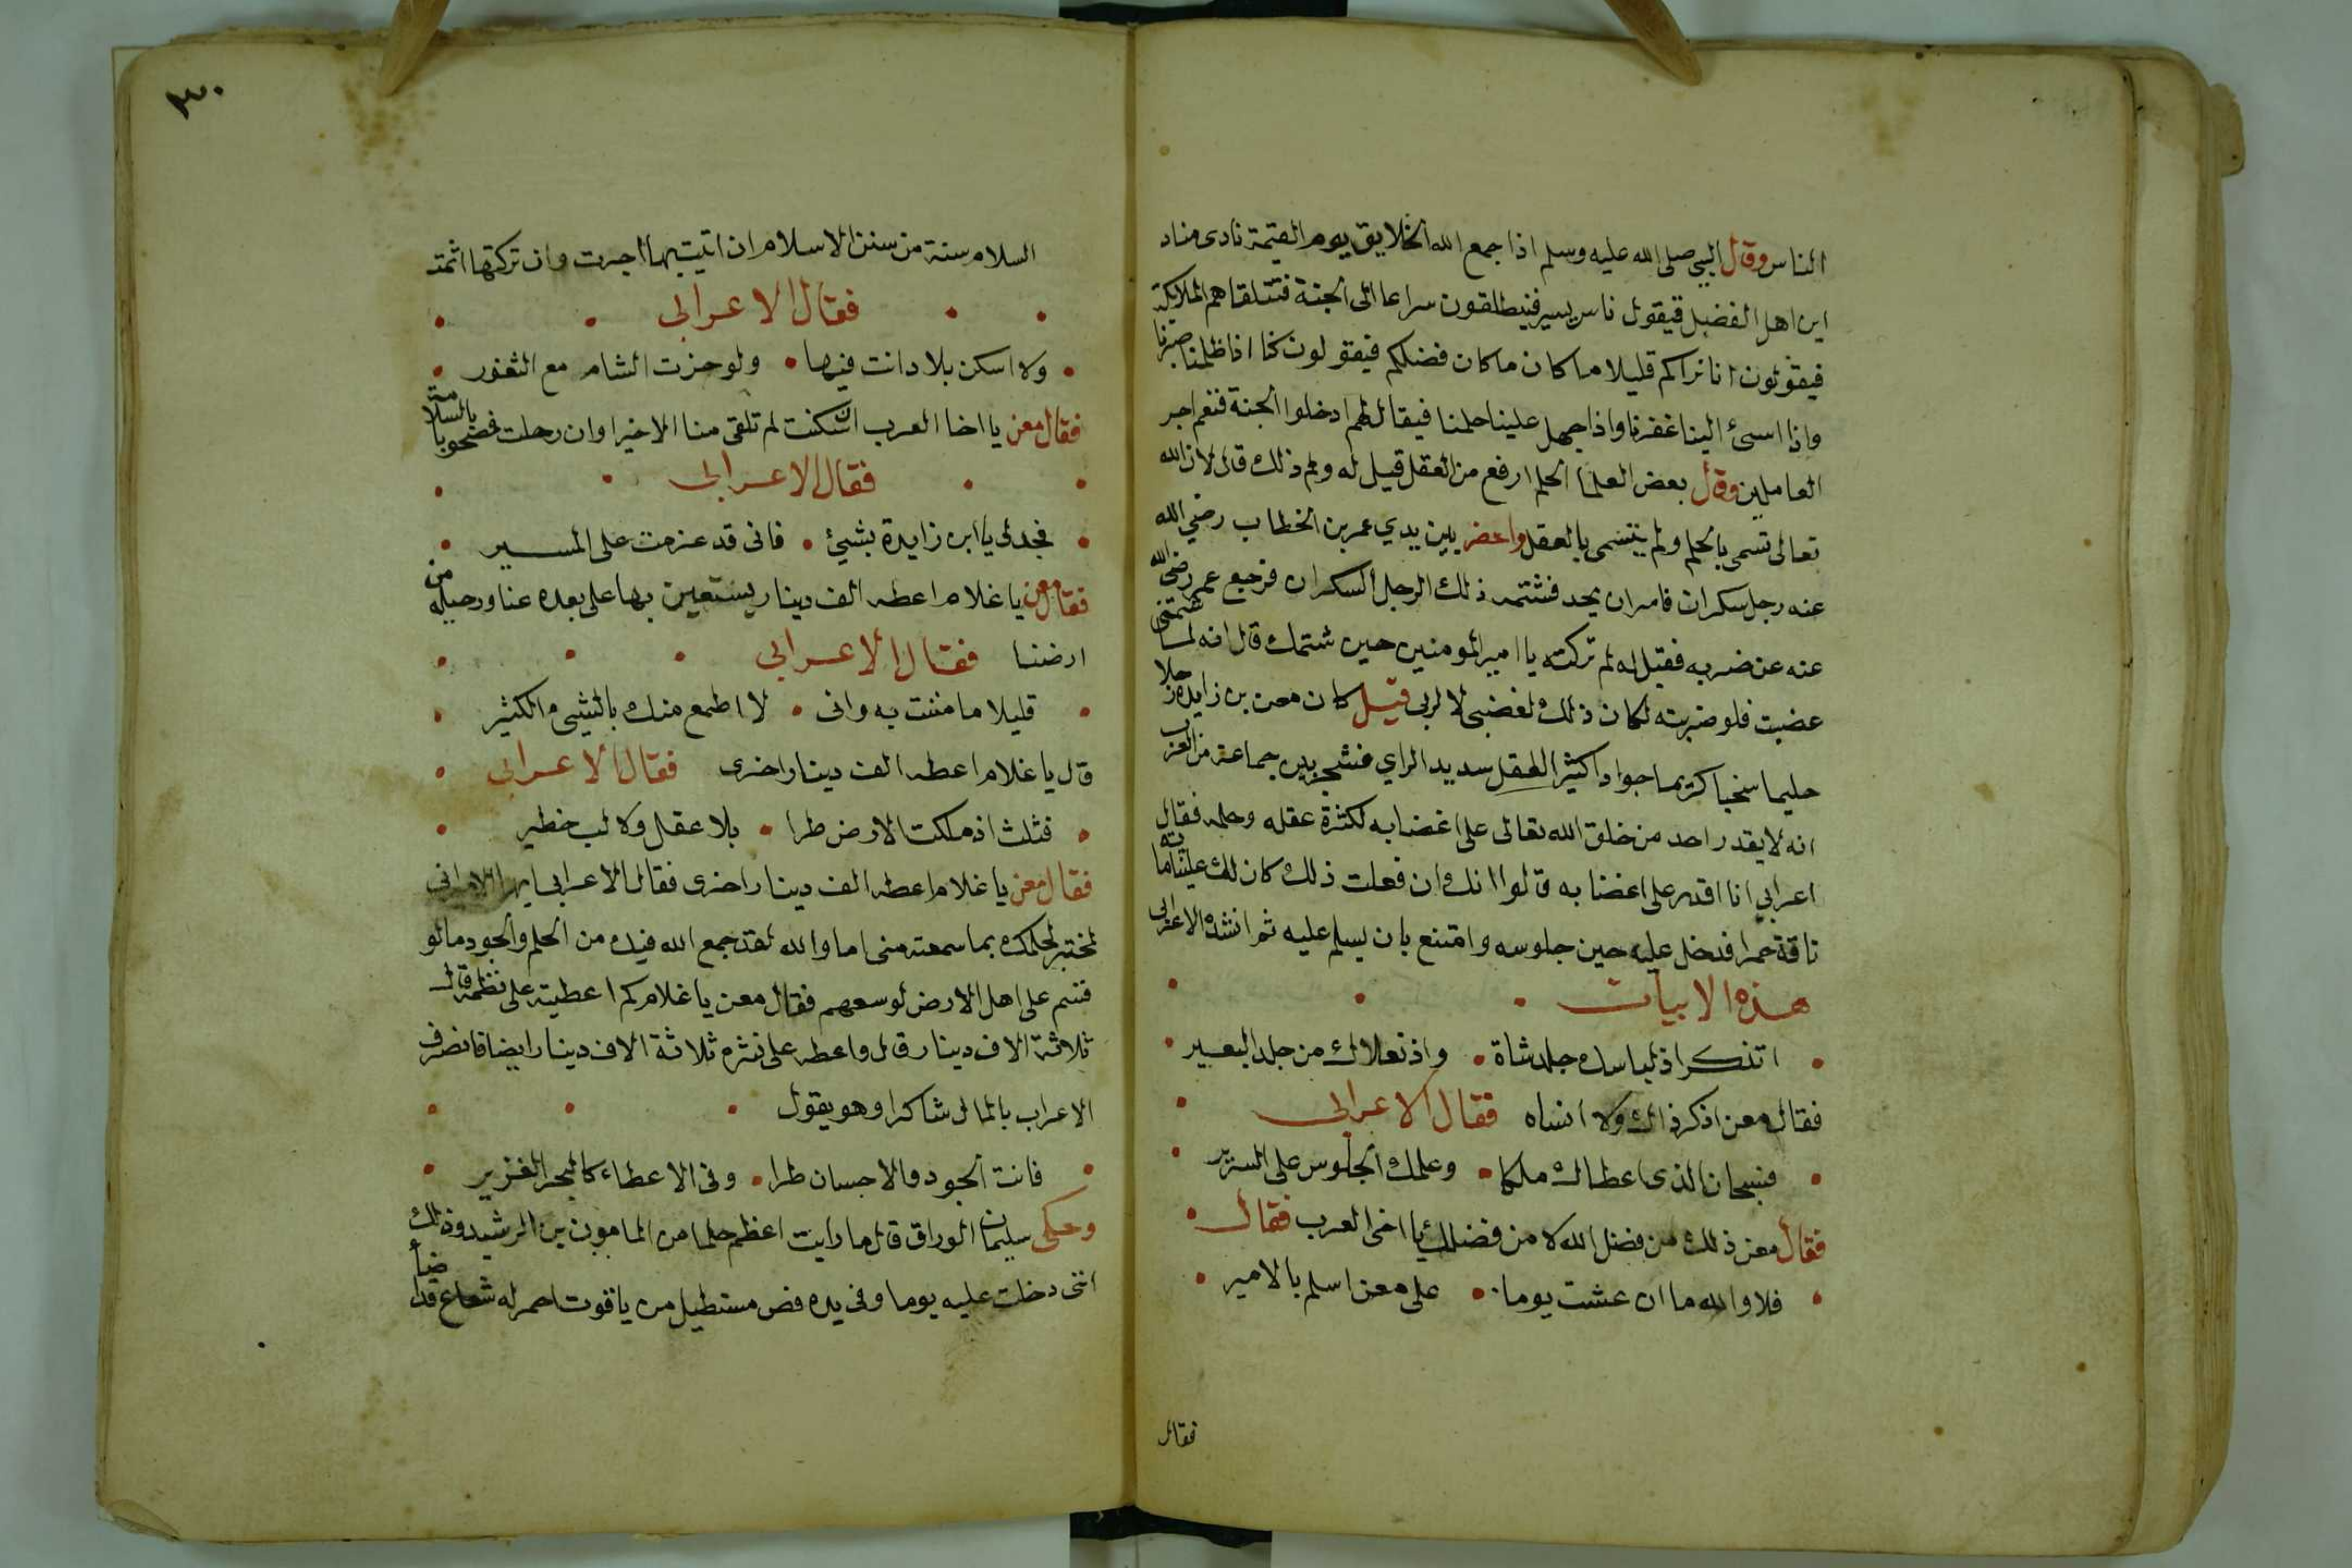 الناس وقال النبي صلى الله عليه وسلم اذا جمع الله الخلايق يوم القيمة نادى مناد
اين اهل الفضل فيقول ناس يسير فينطلقون سراعا الى الجنة فتتلقاهم الملايكة
فيقولون انا نراكم قليلا ما كان ما كان فضلكم فيقولون كنا اذا ظلمنا صبرنا
واذا اسئ الينا غفرنا واذا جهل علينا حلمنا فيقال لهم ادخلوا الجنة فنعم اجر
العاملين وقال بعض العلما الحلم ارفع من العقل قيل له ولم ذلك قال لان الله
تعالى تسمى بالحلم ولم يتسمى بالعقل واحضر بين يدي عمر بن الخطاب رضي الله
عنه رجل سكران فامر ان يحد فشتمه ذلك الرجل السكران فرجع عمر رضى الله
عنه عن ضربه فقيل له لم تركته يا امير المومنين حين شتمك قال انه لما شتمنى
غضبت فلو ضربته لكان ذلك لغضبى لا لربى قيل كان معن بن زايدة رجلا
حليما سخيا كريما جوادا كثير العقل سديد الراي فشجر بين جماعة من العرب
انه لا يقدر احد من خلق الله تعالى على اغضابه لكثرة عقله وحلمه فقال
اعرابي انا اقدر على اغضابه قالوا انك ان فعلت ذلك كان لك علينا ماية
ناقة حمرا فدخل عليه حين جلوسه وامتنع بان يسلم عليه ثم انشد الاعرابى
هذه الابيات
اتذكر اذ لباسك جلد شاة • واذ نعلاك من جلد البعير
فقال معن اذكر ذالك ولا انساه فقال الاعرابى
فسبحان الذى اعطاك ملكا • وعلمك الجلوس على السرير
فقال معن ذلك من فضل الله لا من فضلك يا اخى العرب فقال
فلا والله ما ان عشت يوما • على معن اسلم بالامير
فقال
٣٠
السلام سنة من سنن الاسلام ان اتيت بها اجرت وان تركتها اثمت
فقال الاعرابى
ولا اسكن بلادا انت فيها • ولو حزت الشام مع الثغور
فقال معن يا اخا العرب ان سكنت لم تلقى منا الا خيرا وان رحلت فمصحوبا بالسلامة
فقال الاعرابى
فجد لى يا ابن زايدة بشيئ • فانى قد عزمت على المسير
فقال معن يا غلام اعطه الف دينار يستعين بها على بعده عنا ورحيله من
ارضنا فقال الاعرابى
قليلا ما مننت به وانى • لا اطمع منك بالشيئ الكثير
قال يا غلام اعطه الف دينار اخرى فقال الاعرابى
فثلث اذ ملكت الارض طرا • بلا عقل ولا لب خطير
فقال معن يا غلام اعطه الف دينار اخرى فقال الاعرابى ايها الامير انى
لمختبر لحلمك بما سمعته منى اما والله لقد جمع الله فيك من الحلم والجود ما لو
قسم على اهل الارض لوسعهم فقال معن يا غلام كم اعطيته على نظمه قال
ثلاثة الاف دينار قال واعطه على نثره ثلاثة الاف دينار ايضا فانصرف
الاعراب بالمال شاكرا وهو يقول
فانت الجود والاحسان طرا • وفى الاعطاء كالبحر الغزير
وحكى سليمان الوراق قال ما رايت اعظم حلما من المامون بن الرشيد وذلك
اننى دخلت عليه يوما وفى يده فص مستطيل من ياقوت احمر له شعاع قد اضا